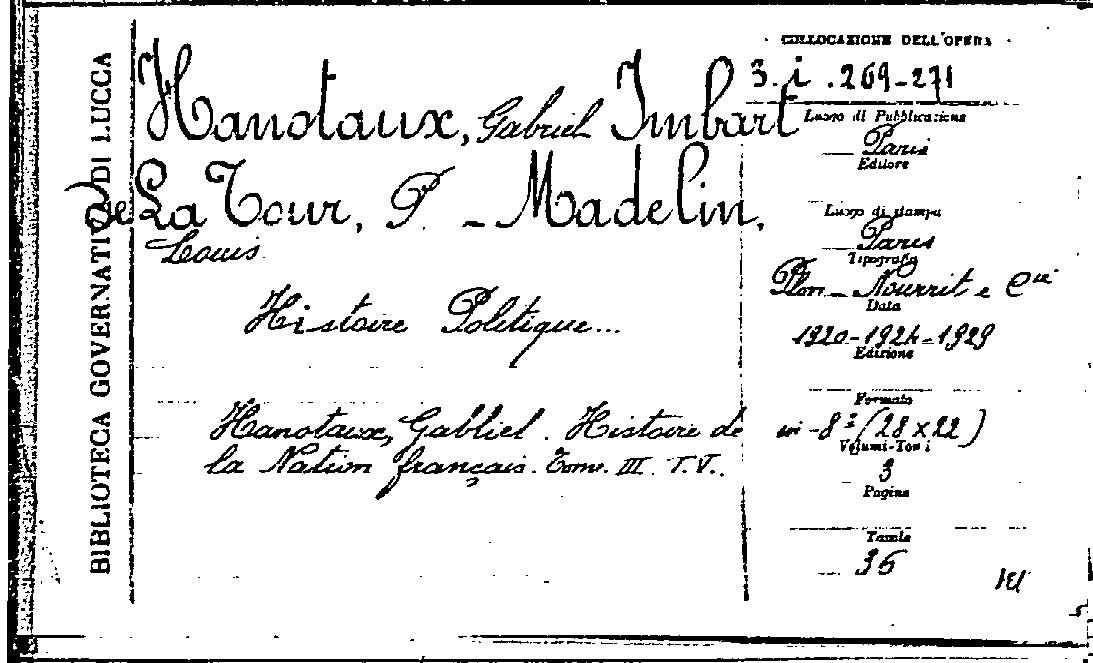 BIBLIOTECA GOVERNATIVA DI LUCCA
Hanotaux, Gabriel Imbart
de La Tour, P. - Madelin,
Louis
Histoire Politique...
Hanotaux, Gabliel. Histoire de
la Nation français. Tome. III. T.V..
COLLOCAZIONE DELL'OPERA
3. i. 269-271
Luogo di Pubblicazione
Paris
Editore
Luogo di stampa
Paris
Tipografia
Plon - Nourrit e C.ie
Data
1920-1924-1929
Edizione
Formato
in-8° (28x22)
Volumi-Tomi
3
Pagine
Tavole
36